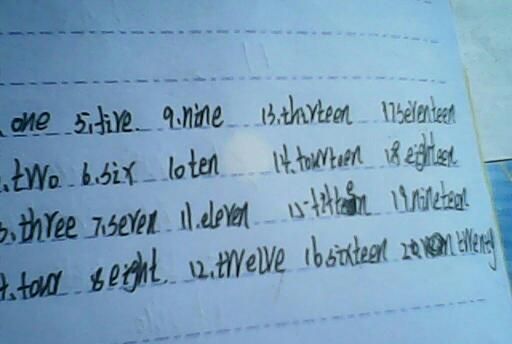 . one 5.five. 9.nine 13.thirteen 17seventeen
.two. 6.six 10ten 14.fourteen 18.eighteen
3.three 7.seven 11.eleven 15. 19.nineteen
4.four 8eight. 12.twelve 16sixteen 20 twenty